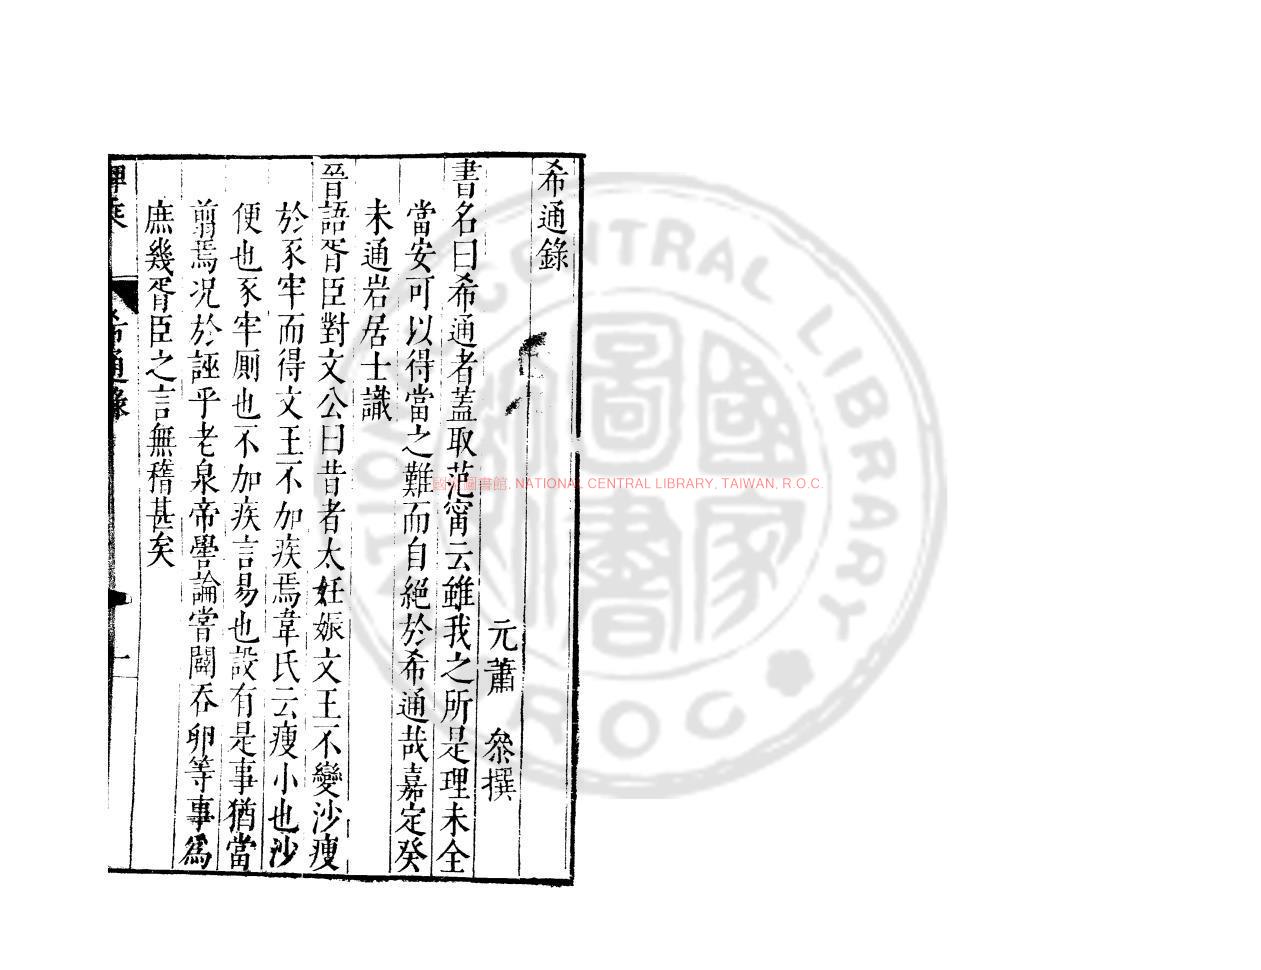 希通錄
元蕭 參撰
書名曰希通者蓋取范甯云雖我之所是理未全
當安可以得當之難而自絕於希通哉嘉定癸
未通岩居士識
晉語胥臣對文公曰昔者太妊娠文王不變沙瘦
於豕牢而得文王不加疾焉韋氏云瘦小也沙
便也豕牢厠也不加疾言易也設有是事猶當
翦焉况於誣乎老泉帝嚳論嘗闢吞卵等事爲
庶幾胥臣之言無稽甚矣
稗乘 希通錄 一
國家圖書館, NATIONAL CENTRAL LIBRARY, TAIWAN, R.O.C.
NATIONAL CENTRAL LIBRARY
ROC
國家圖書